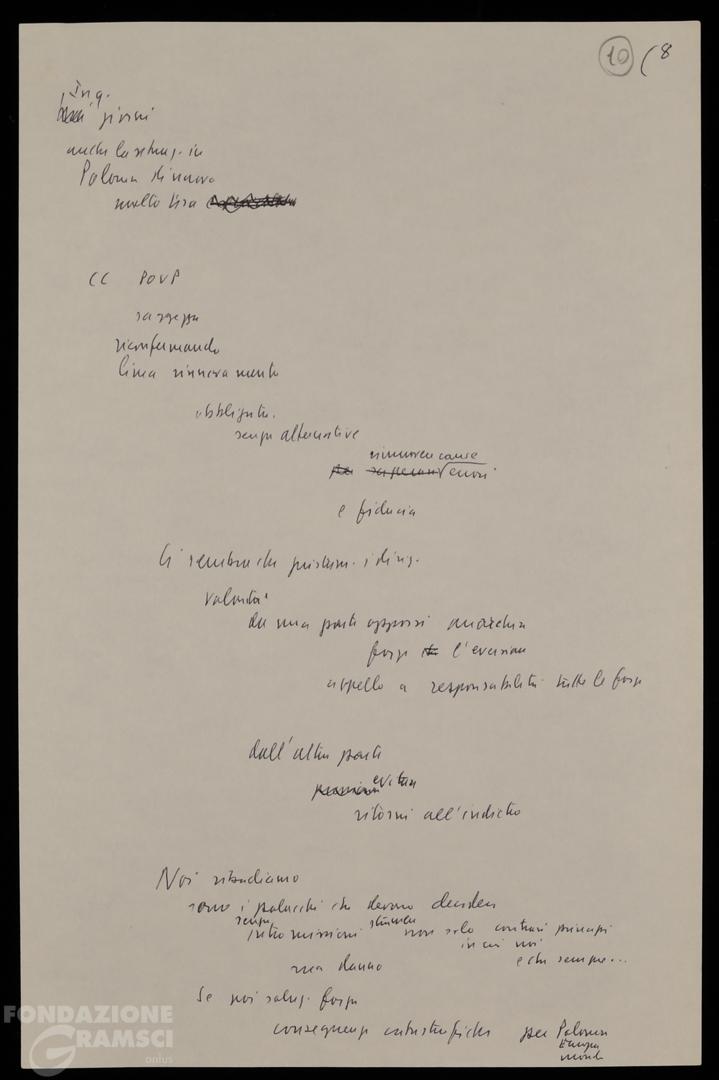 10 (8
In q.
giorni
anche la situaz. in
Polonia di nuovo
molto tesa
CC POUP
saggezza
riconfermando
linea rinnovamento
obbligata.
senza alternative
rimuovere cause
errori
e fiducia
Ci sembra che
volontà
da una parte opporsi anarchia
forze l'eversione
appello a responsabilità tutte le forze
dall'altra parte
evitare
ritorni all'indietro
Noi ribadiamo
sono i polacchi che devono decidere
senza
intromissioni straniere non solo contrari principi
in cui noi
e che sempre...
ma danno
Se poi soluz. forza
conseguenze catastrofiche per Polonia
Europa
mondo
FONDAZIONE
GRAMSCI
onlus